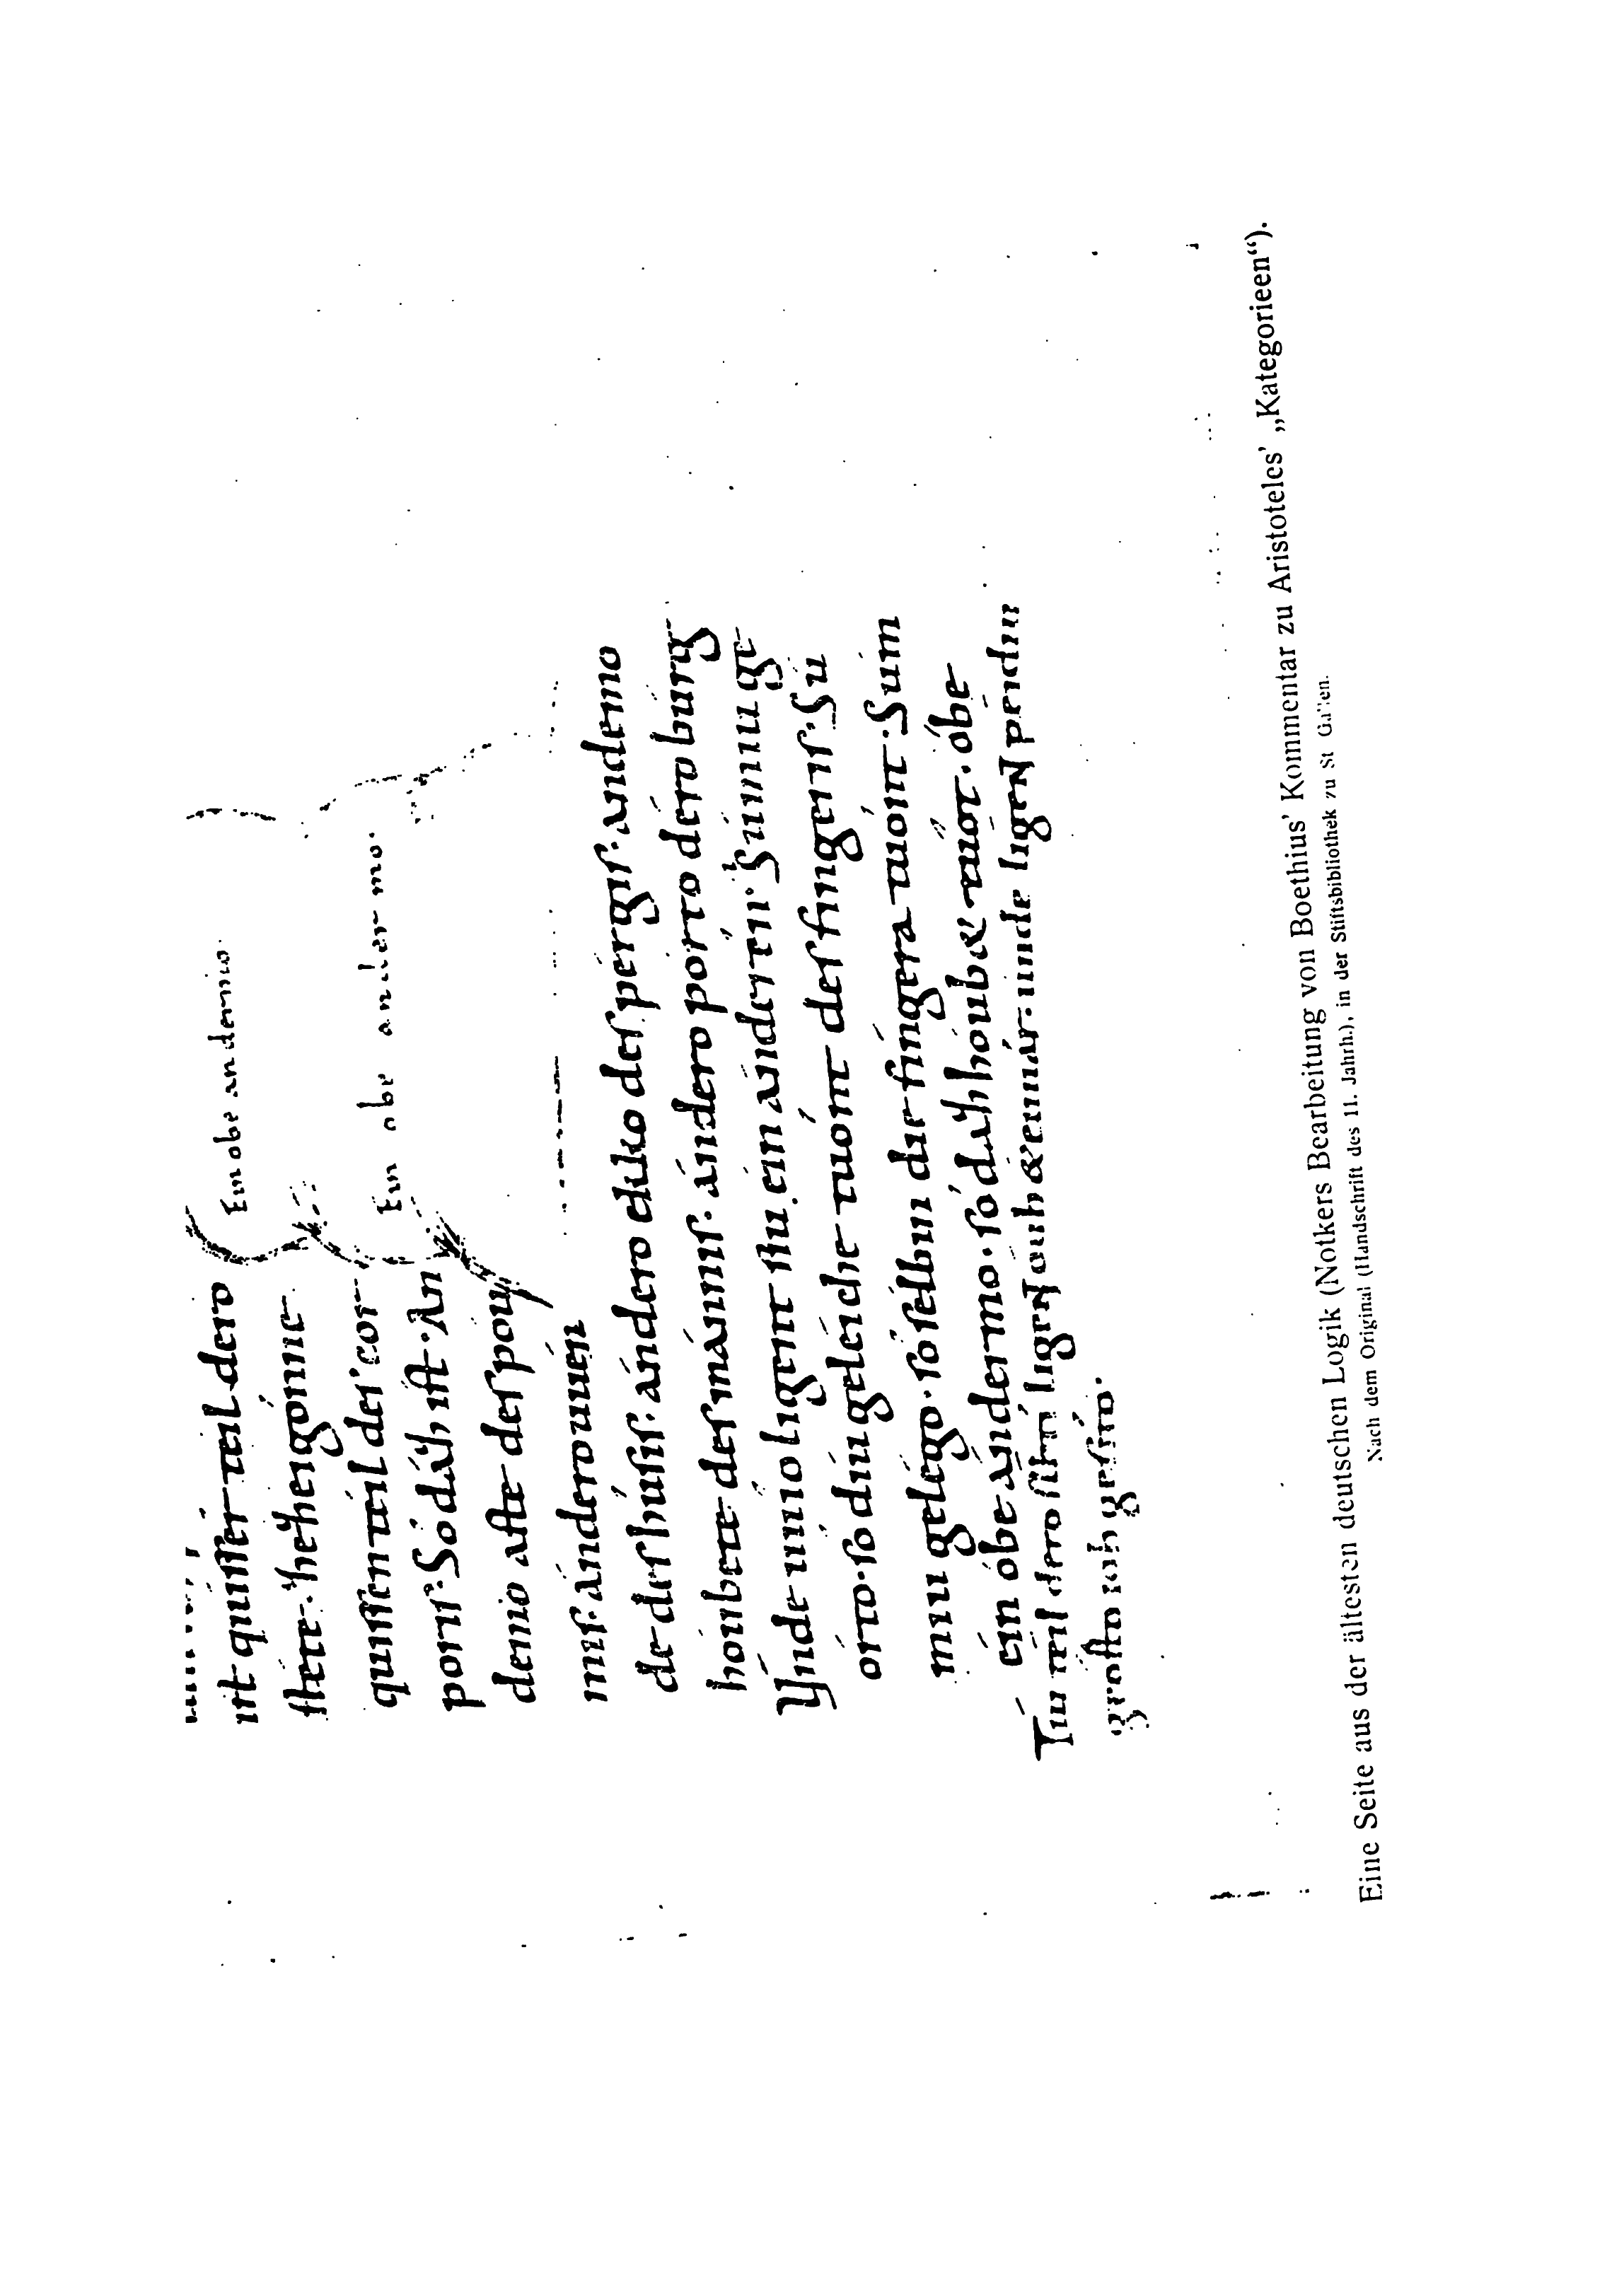 ist quisser teil dero
stéte. héizent gónne
quissen téil des cor
poris. Só dáz ist. An
demo aste des pou
mis. ánderouuén
de des húsis. ándero ekko des pérgis. andemo
hóubete des mánnis. ándero porto déro búrg
Únde uuío ligent siu éin ánderen. Súmiu ge
órto. só diu geléiche tuónt des fingeris. Sú
míu gelégo. só sélbin die fingera tuónt. Súm
éin óbe ándermo. só dáz hóubet tuót. óbe
Tíu téil dero líhtí ligent ouh únde ligent péidiu
Ein obe andermo.
Ein obe andermo.
Eine Seite aus der ältesten deutschen Logik (Notkers Bearbeitung von Boethius' Kommentar zu Aristoteles' „Kategorieen“).
Nach dem Original (Handschrift des 11. Jahrh.), in der Stiftsbibliothek zu St Gallen.